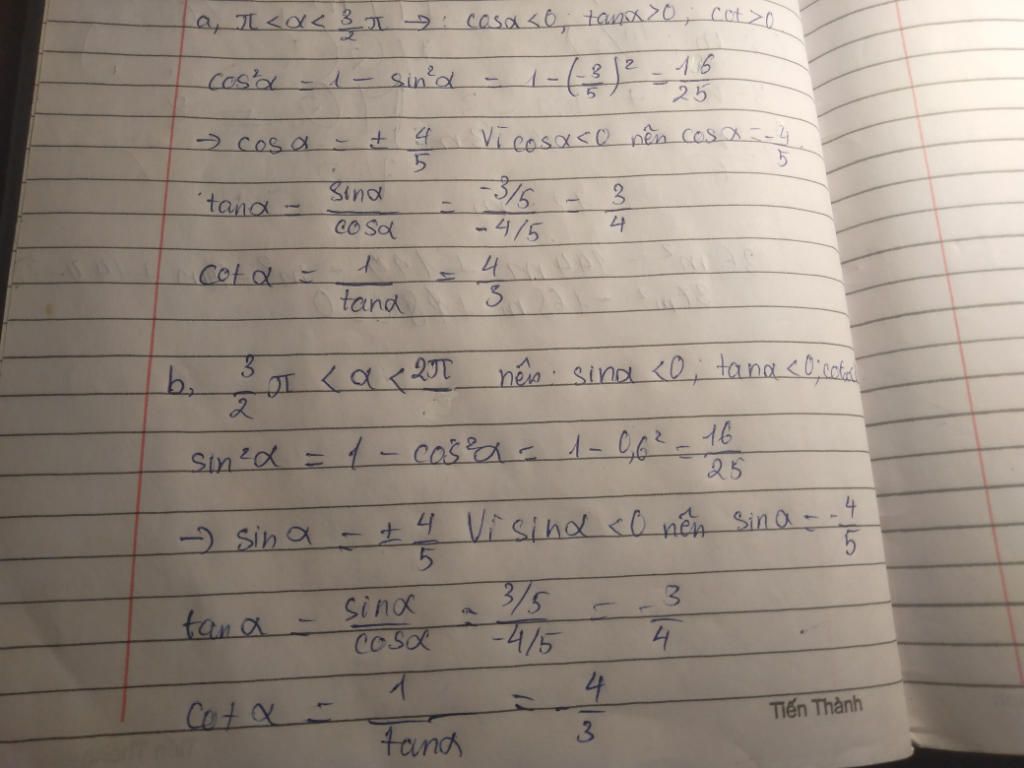 a, π < α < 3/2 π → : cosα < 0; tanα > 0; cot > 0
cos²α = 1 - sin²α = 1 - (-3/5)² = 16/25
→ cosα = ± 4/5 Vì cosα < 0 nên cosα = -4/5.
tanα = sinα/cosα = -3/5 / -4/5 = 3/4
cotα = 1/tanα = 4/3
b, 3/2 π < α < 2π nên: sinα < 0; tanα < 0;
sin²α = 1 - cos²α = 1 - 0,6² = 16/25
→ sinα = ± 4/5 Vì sinα < 0 nên sinα = -4/5
tanα = sinα/cosα = 3/5 / -4/5 = -3/4
cotα = 1/tanα = -4/3
Tiến Thành